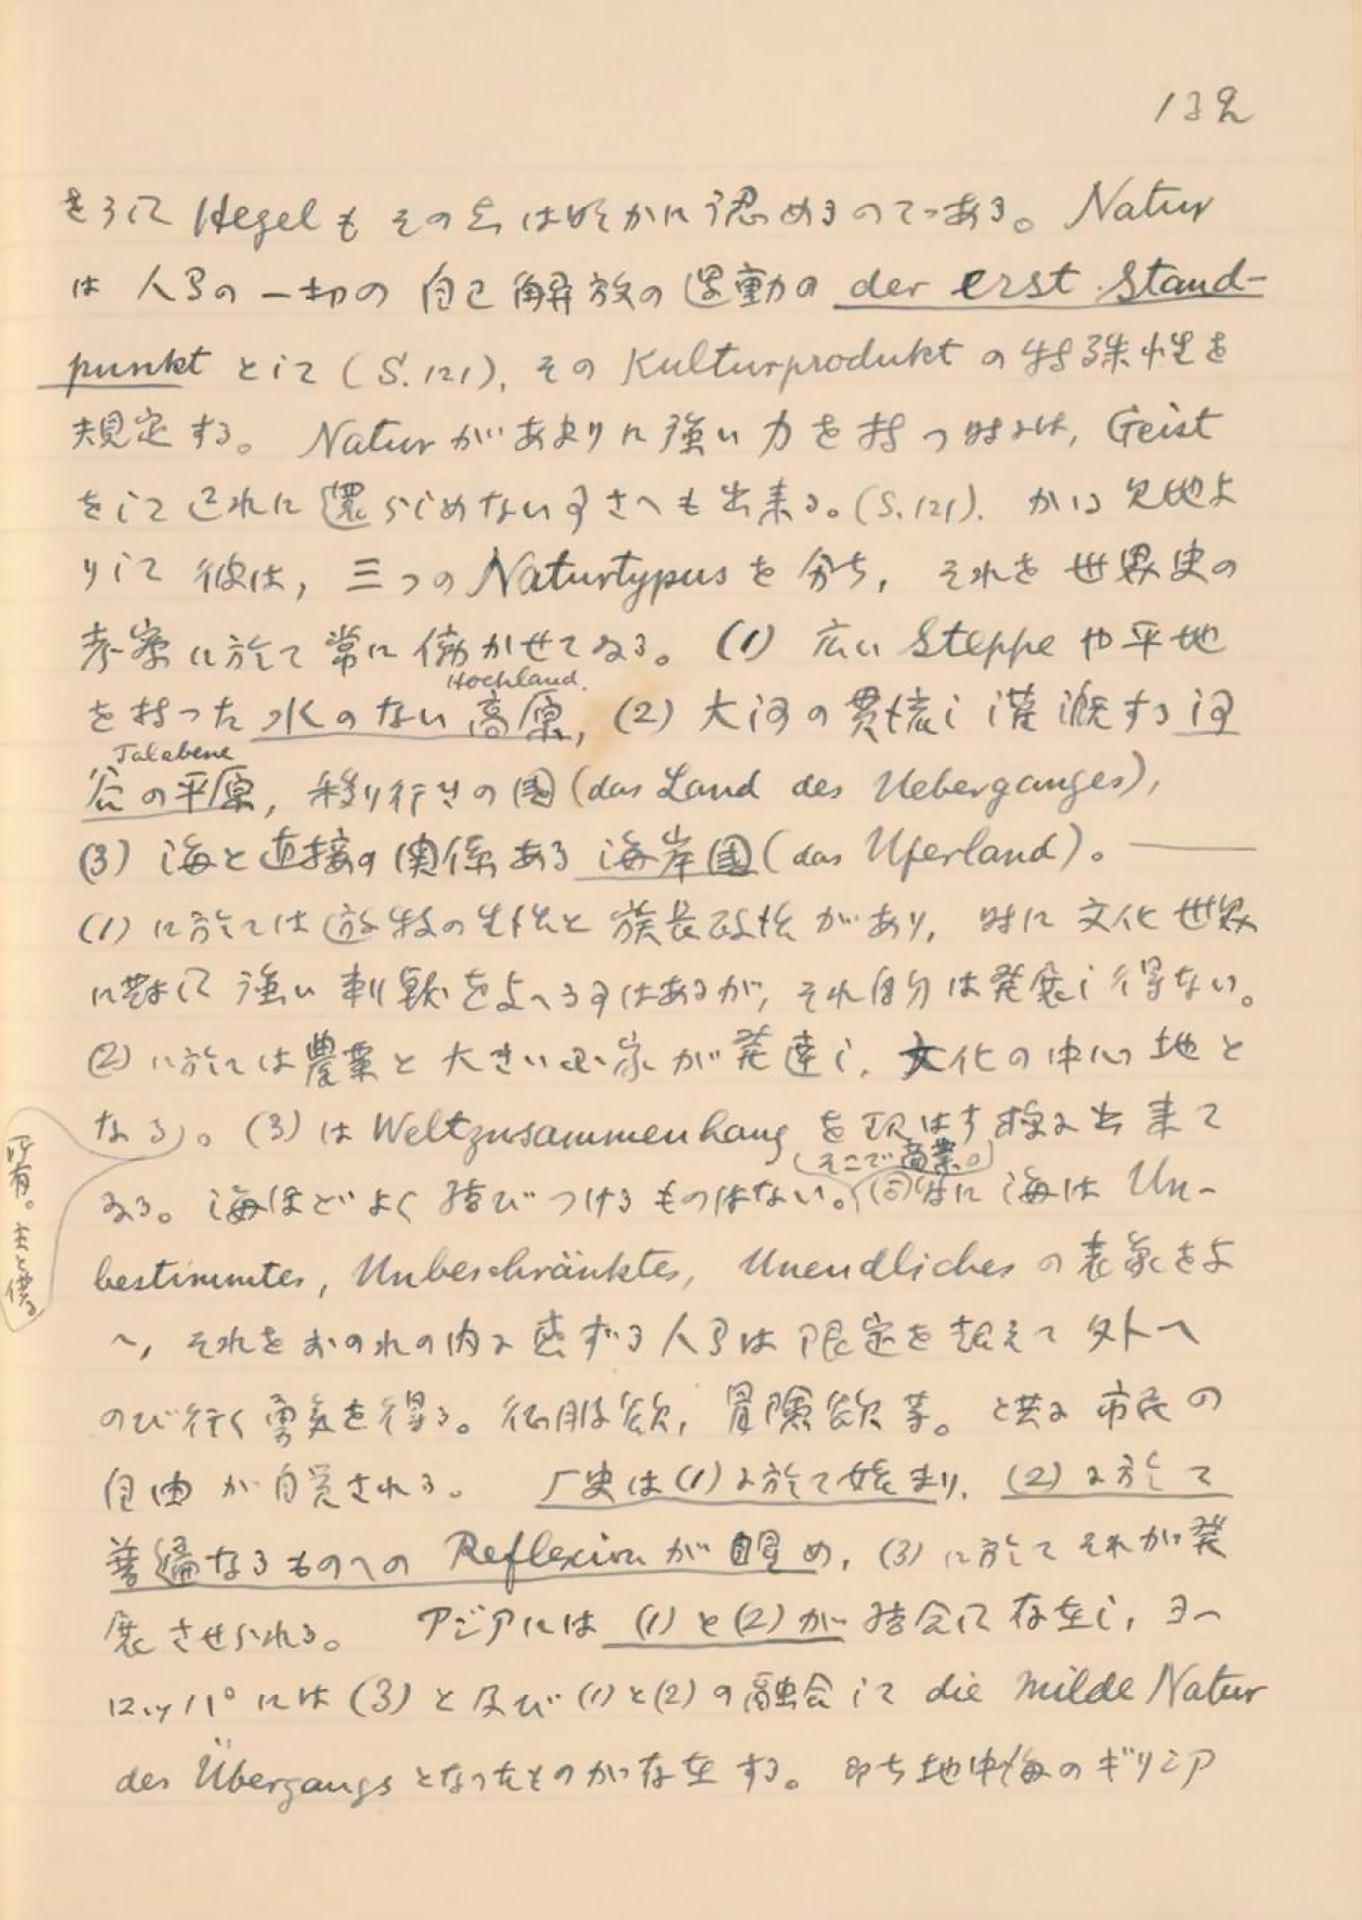 そして Hegel も その点は明かに認めるのである。 Natur
は 人間の一切の 自己解放の運動の der erst Stand-
punkt として (S.121), その Kulturprodukt の特殊性を
規定する。 Natur があまりに強い力を持つ時には, Geist
をして己れに還らしめない事さへも出来る。(S.121). かゝる見地よ
りして 彼は, 三つの Naturtypus を分ち, それを世界史の
考察に於て常に働かせてゐる。 (1) 広い Steppe や平地
Hochland.
を持った 水のない高原, (2) 大河の貫流し灌漑する河
Talebene
谷の平原, 移り行きの國 (das Land des Ueberganges),
(3) 海と直接の関係ある 海岸國 (das Uferland)。 ——
(1) に於ては遊牧の生活と族長政治があり, 時に文化世界
に対して強い刺戟を与へる事はあるが, それ自身は発展し得ない。
(2) に於ては農業と大きい国家が発達し, 文化の中心地と
なる。 (3) は Weltzusammenhang を現はす様に出来て
(そこで商業。)
ゐる。 海ほどよく結びつけるものはない。(同)時に 海は Un-
所有。主と僕。
bestimmtes, Unbeschränktes, Unendliches の表象を与
へ, それをおのれの内に感ずる人間は限定を超えて外へ
のび行く勇気を得る。 征服欲, 冒険欲等。 と共に市民の
自由が自覚される。 歴史は (1) に於て始まり, (2) に於て
普遍なるものへの Reflexion が醒め, (3) に於てそれが発
展させられる。 アジアには (1) と (2) が結合して存在し, ヨー
ロッパには (3) と及び (1) と (2) の融合して die milde Natur
des Übergangs となったものが存在する。 即ち地中海のギリシア